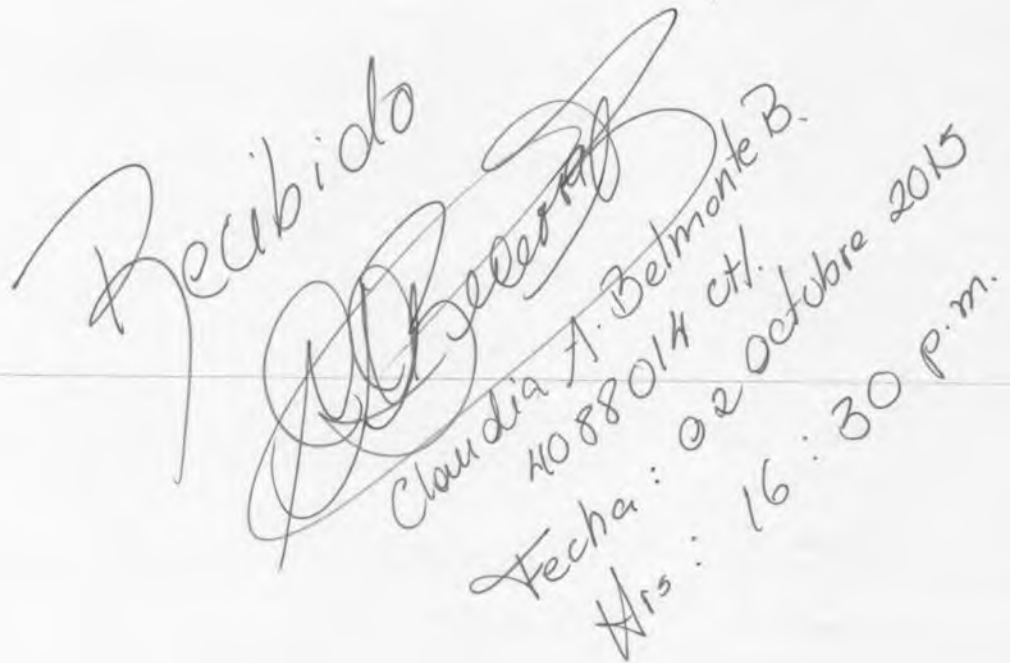 Recibido
Claudia A. Belmonte B.
4088014 ch.
Fecha: 02 Octubre 2015
Hrs: 16:30 p.m.